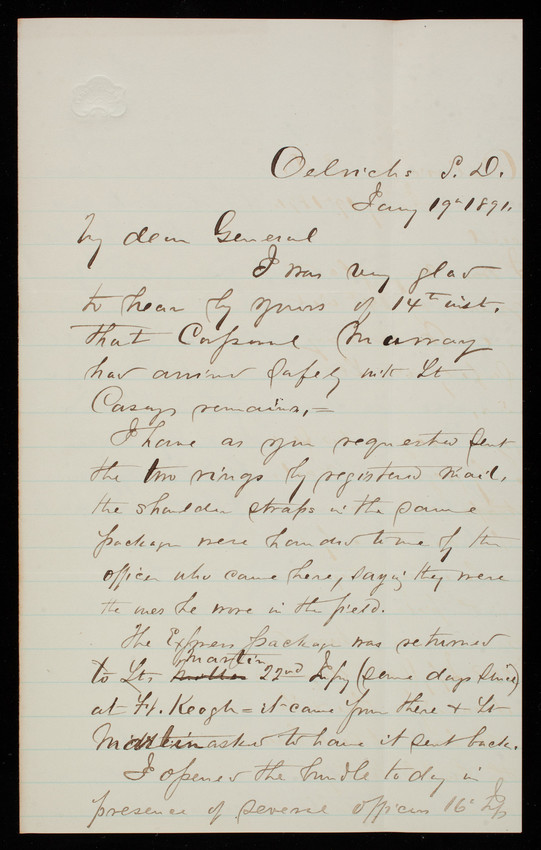 Oelrichs S. D.
Jany 19th 1891.
My dear General
I was very glad
to hear by yours of 14th inst.
that Corporal Murray
had arrived safely with Lt
Caseys remains, =
I have as you requested sent
the two rings by registered mail,
the shoulder straps in the same
package were handed to me by the
officer who came here, saying they were
the ones he wore in the field.
The Express package was returned
to Lts Martin 22nd Infy (some days since)
at Ft. Keogh = it came from there & Lt
Martin asked to have it sent back.
I opened the bundle today in
presence of several officers 16th Infy